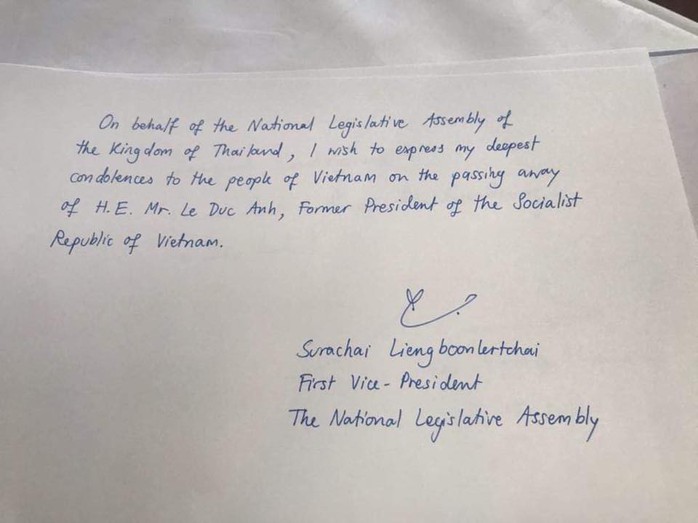 On behalf of the National Legislative Assembly of
the Kingdom of Thailand, I wish to express my deepest
condolences to the people of Vietnam on the passing away
of H.E. Mr. Le Duc Anh, Former President of the Socialist
Republic of Vietnam.
Surachai Liengboonlertchai
First Vice-President
The National Legislative Assembly